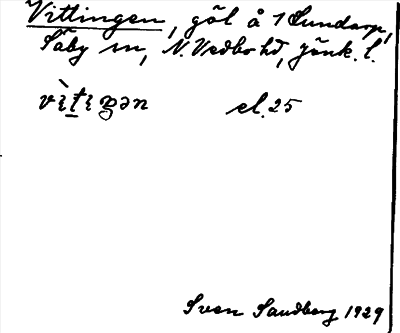 Vittingen, göl å 1 Sundarp,
Säby sn, N. Vedbo hd, Jönk. l.
vìtiŋən el. 25
Sven Sandberg 1929